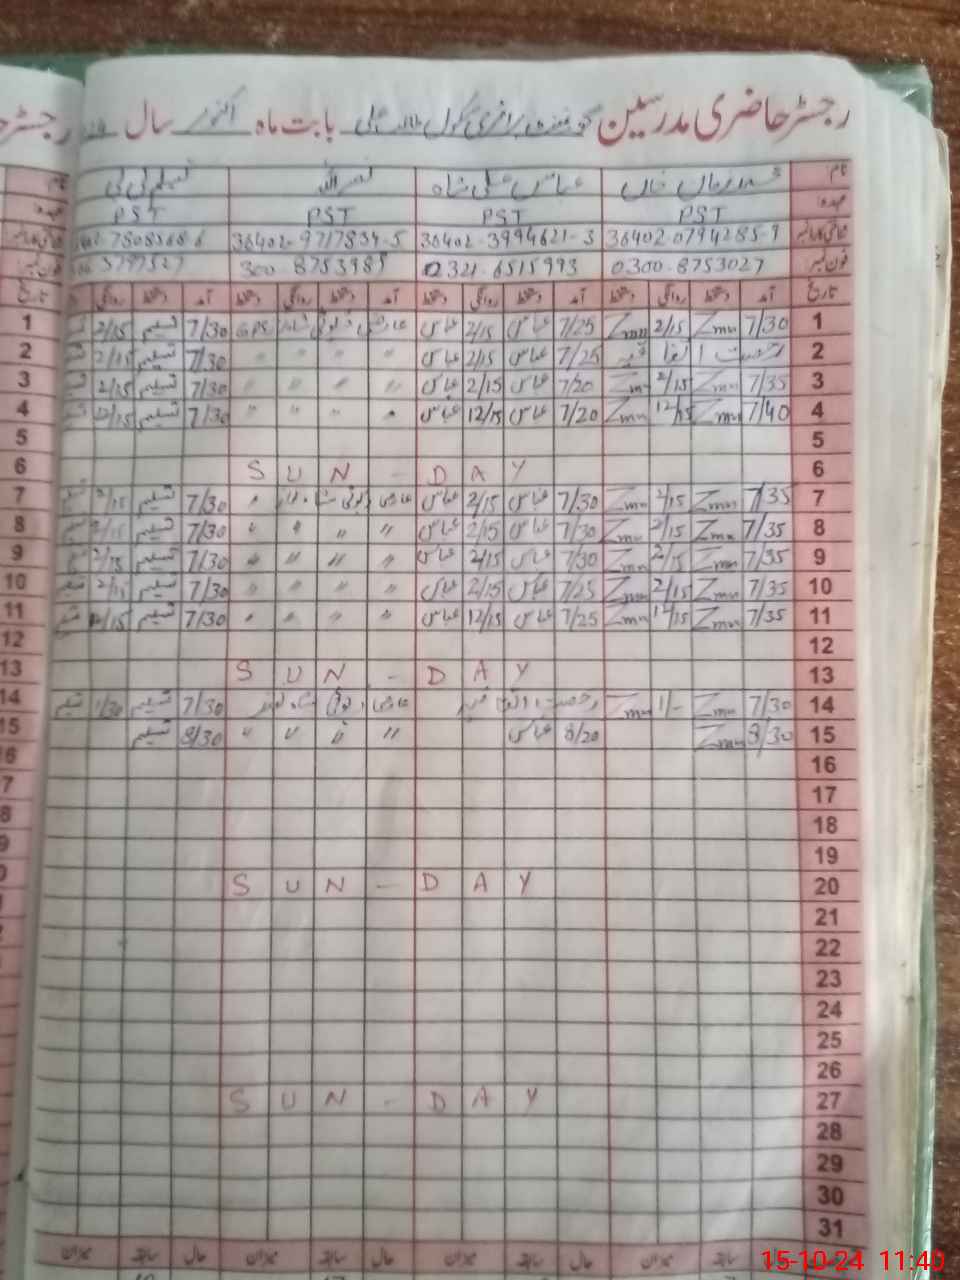 رجسٹر حاضری مدرسین گورنمنٹ پرائمری سکول بابت ماہ اکتوبر سال
نام محمد زمان خاں عباس علی شاہ نصر اللہ تسلیم بی بی
عہدہ PST PST PST PST
شناختی کارڈ نمبر 36402-0794285-9 36402-3994621-3 36402-9717834-5
فون نمبر 0300-8753027 0321-6515993 300-8753989
تاریخ آمد دستخط روانگی دستخط آمد دستخط روانگی دستخط آمد دستخط روانگی دستخط آمد دستخط روانگی
1 7/30 Zmn 2/15 Zmn 7/25 عباس 2/15 عباس عارضی ڈیوٹی GPS 7/30 تسلیم 2/15
2 رخصت اتفاقیہ 7/25 عباس 2/15 عباس " " " " 7/30 تسلیم 2/15
3 7/35 Zmn 2/15 Zmn 7/20 عباس 2/15 عباس " " " " 7/30 تسلیم 2/15
4 7/40 Zmn 12/15 Zmn 7/20 عباس 12/15 عباس " " " " 7/30 تسلیم 12/15
5
6 SUN-DAY
7 7/35 Zmn 2/15 Zmn 7/30 عباس 2/15 عباس عارضی ڈیوٹی " 7/30 تسلیم 2/15
8 7/35 Zmn 2/15 Zmn 7/30 عباس 2/15 عباس " " " " 7/30 تسلیم 2/15
9 7/35 Zmn 2/15 Zmn 7/30 عباس 2/15 عباس " " " " 7/30 تسلیم 2/15
10 7/35 Zmn 2/15 Zmn 7/25 عباس 2/15 عباس " " " " 7/30 تسلیم 2/15
11 7/35 Zmn 12/15 Zmn 7/25 عباس 12/15 عباس " " " " 7/30 تسلیم 12/15
12
13 SUN-DAY
14 7/30 Zmn 1/- Zmn رخصت اتفاقیہ عارضی ڈیوٹی 7/30 تسلیم 1/30 تسلیم
15 8/30 Zmn 8/20 عباس " " " " 8/30 تسلیم
16
17
18
19
20 SUN-DAY
21
22
23
24
25
26
27 SUN-DAY
28
29
30
31
حال سابقہ میزان حال سابقہ میزان حال سابقہ میزان حال سابقہ میزان
15-10-24 11:40